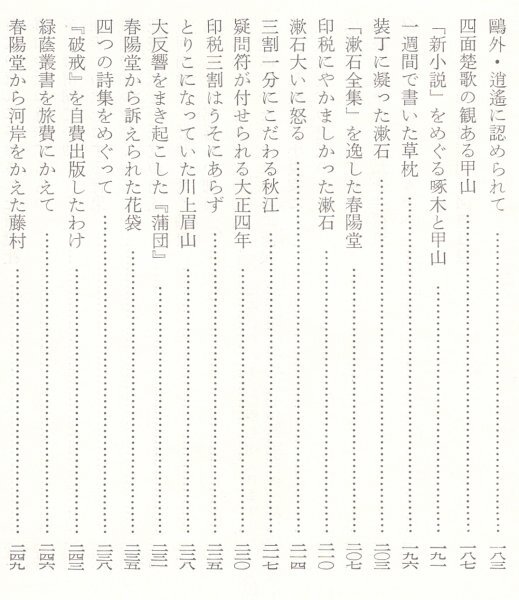 鷗外・逍遙に認められて……一八三
四面楚歌の観ある甲山……一八七
『新小説』をめぐる啄木と甲山……一九一
一週間で書いた草枕……一九六
装丁に凝った漱石……二〇三
『漱石全集』を逸した春陽堂……二〇七
印税にやかましかった漱石……二一〇
漱石大いに怒る……二一四
三割一分にこだわる秋江……二一七
疑問符が付せられる大正四年……二二〇
印税三割はうそにあらず……二二五
とりこになっていた川上眉山……二二八
大反響をまき起こした『蒲団』……二三一
春陽堂から訴えられた花袋……二三五
四つの詩集をめぐって……二三八
『破戒』を自費出版したわけ……二四三
緑蔭叢書を旅費にかえて……二四六
春陽堂から河岸をかえた藤村……二四九